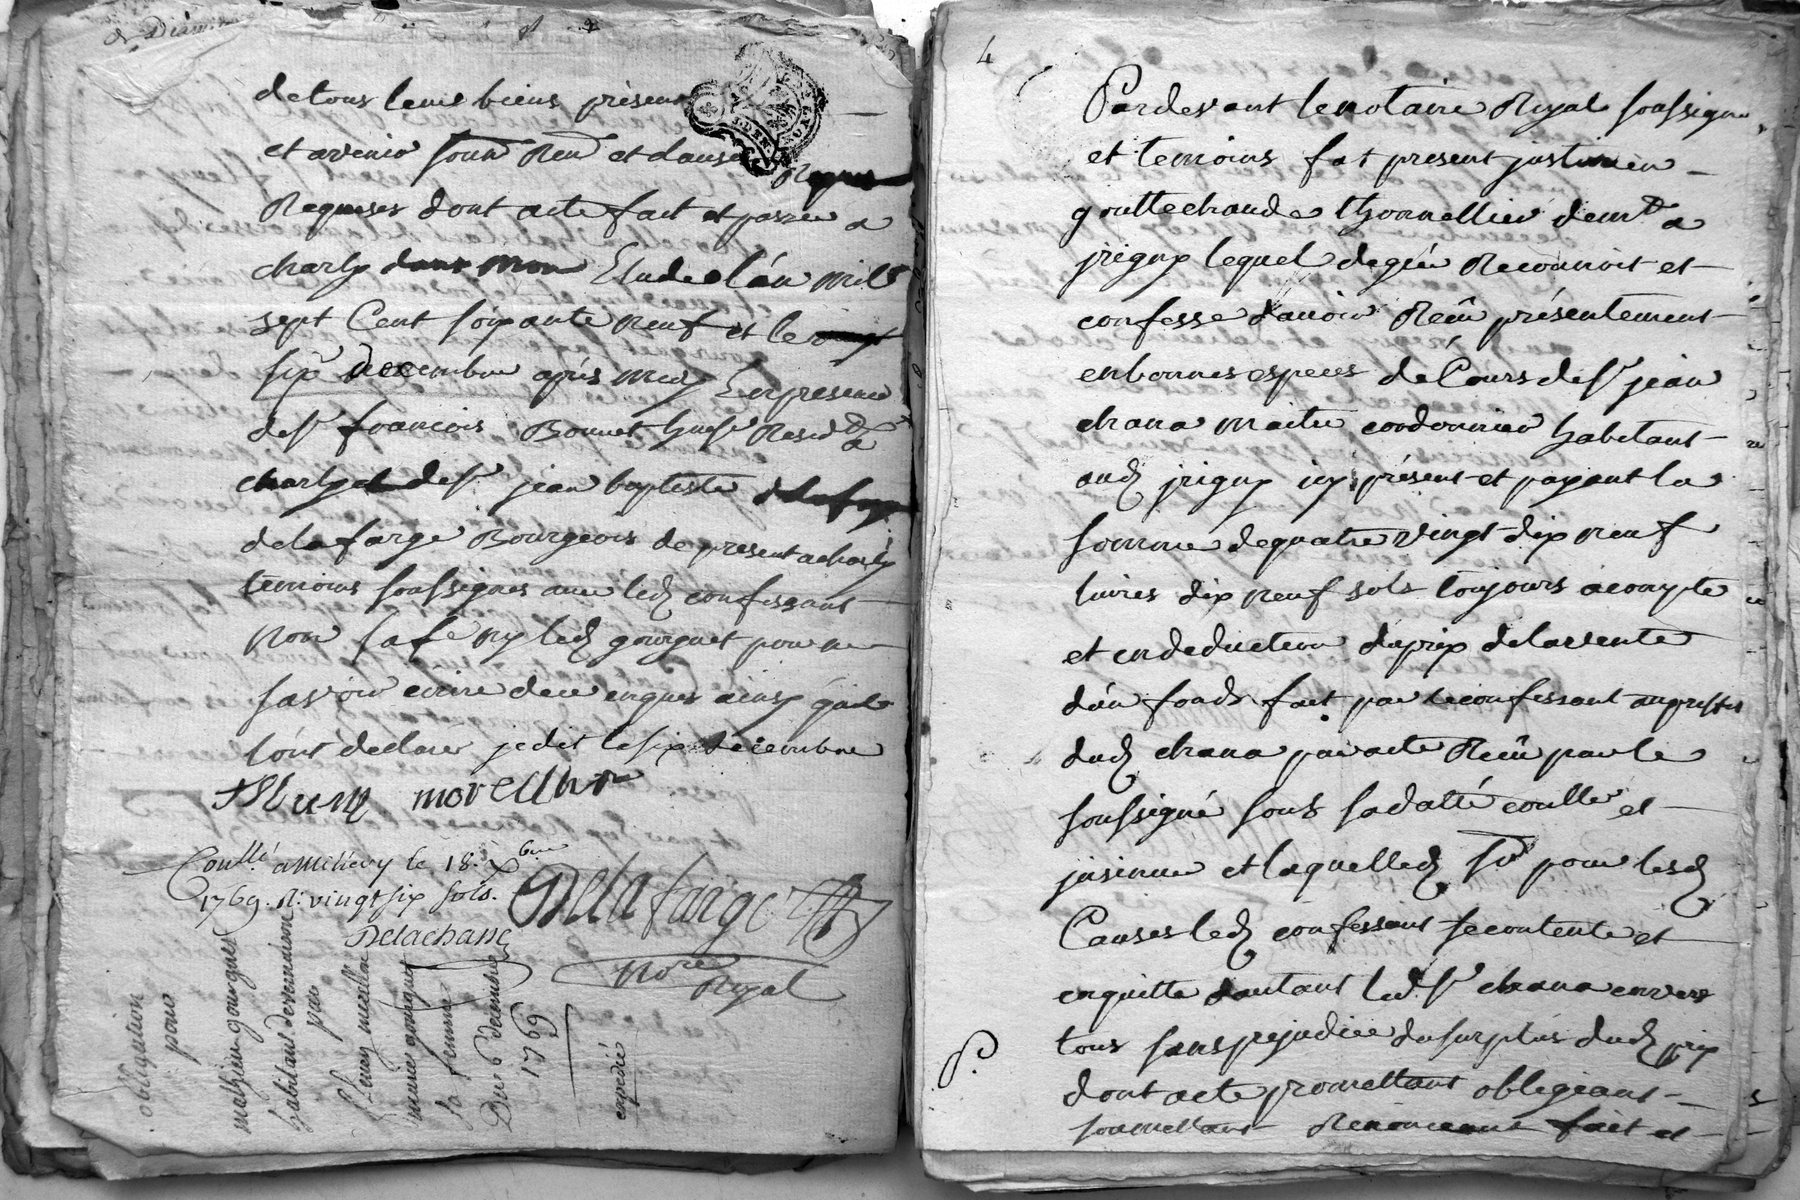 de tous leurs biens présens
et avenir soum Ren et clause
Requises dont acte fait et passée a
charly Etude l'an mil
sept Cent soixante neuf et le
six decembre après midy En présence
de Sr francois Bonnet huisr Residt a
charly et de Sr jean baptiste
delafarge Bourgeois de present a charly
temoins soussignes avec led confessant
non sa fe ny led gourguet pour ne
savoir ecrire de ce enquis ainsy quils
lont declarer je dit le six decembre
fleury
Conllé a Millery le 18. Xbre
1769. R: vingt six sols.
Delachasse
Delafarge
Nore Royal
obligation
pour
mathieu gourguet
habitand de vernaison
par
fleury
gourguet
sa femme
Du 6 decembre
1769
expedié
4
Pardevant le notaire Royal soussigné
et temoins fut present justinien
gouttechaude thonnellier demt a
jrigny lequel de gré Reconnoit et
confesse d'avoir Reçû présentement
en bonnes especes de Cours de Sr jean
chana maitre cordonnier habitant
aud jrigny icy présent et payant la
somme de quatre vingt dix neuf
livres dix neuf sols toujours acompte
et en deduction du prix de la vente
d'un fonds fait par le confessant au proffit
dud chana par acte Reçû par le
soussigné sous sa datte conllé et
jnsinué et laquelle d. So pour lesd
Causes led confessant se contente et
en quitte d'autant led. Sr chana envers
tous sans prejudice du surplus dud prix
dont acte promettant obligeant
soumettant Renonceant fait et
P.